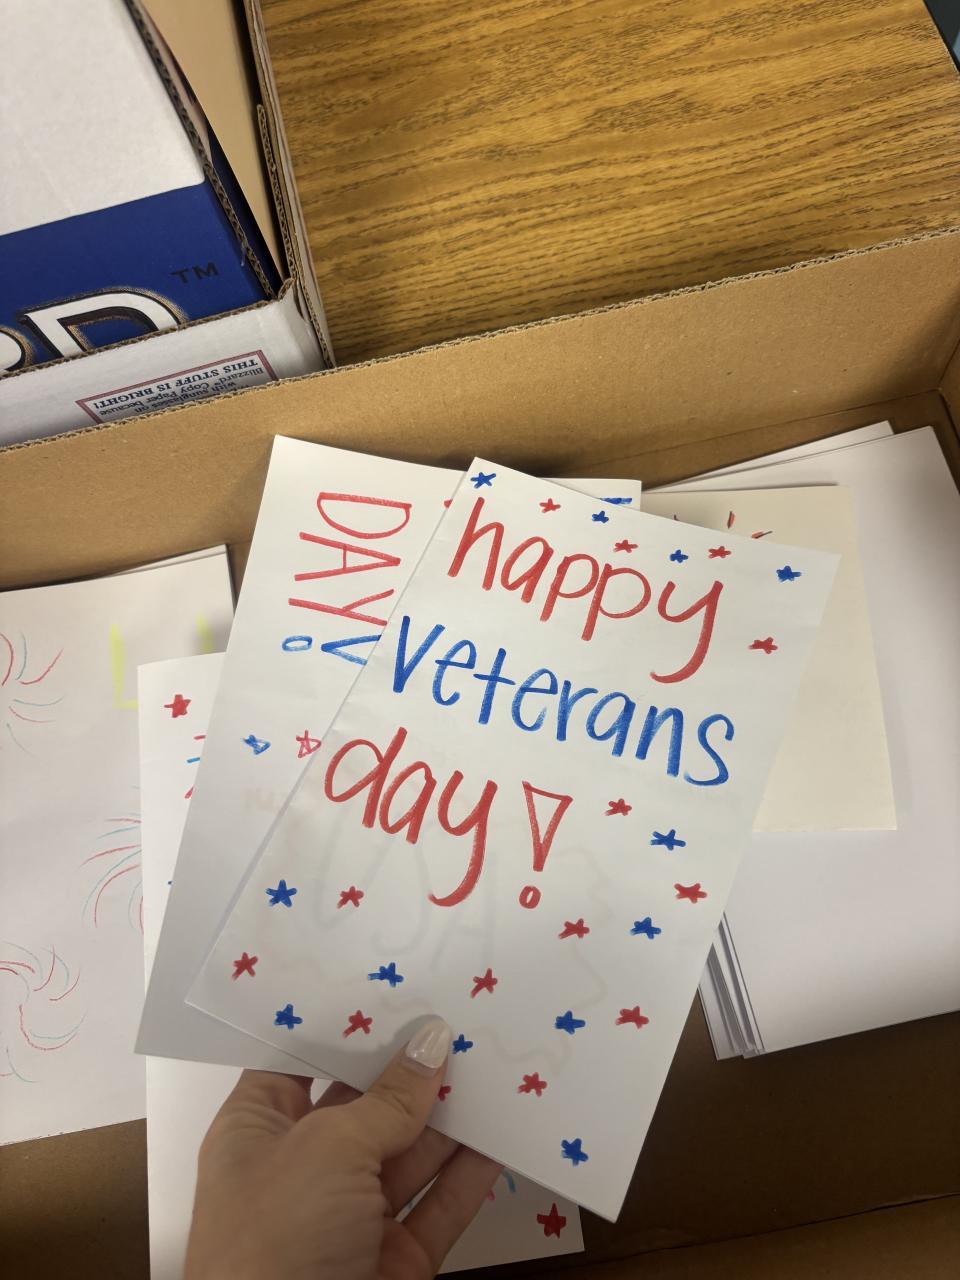 happy
veterans
day!
DAY
TM
THIS STUFF IS BRIGHT!
Blizzard® Copy Paper because
with sunglasses on